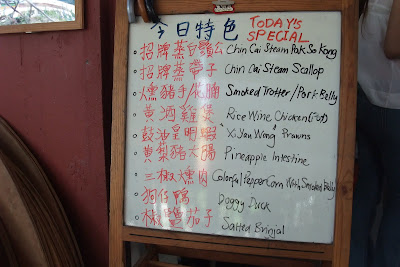 今日特色 TODAY'S SPECIAL
招牌蒸白鬚公 Chin Cai Steam Pak So Kong
招牌蒸带子 Chin Cai Steam Scallop
燻豬手/腩 Smoked Trotter/Pork Belly
黄酒雞煲 Rice Wine Chicken (Pot)
豉油皇明蝦 "Xi Yau Wong" Prawns
黄梨豬大腸 Pineapple Intestine
三椒燻肉 Colorful Pepper Corn With Smoked Belly
狗仔鴨 Doggy Duck
椒鹽茄子 Salted Brinjal